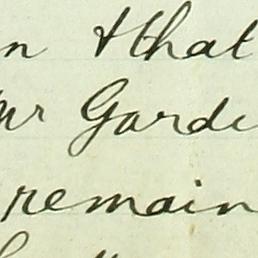 n & that
Mr Garde
remain